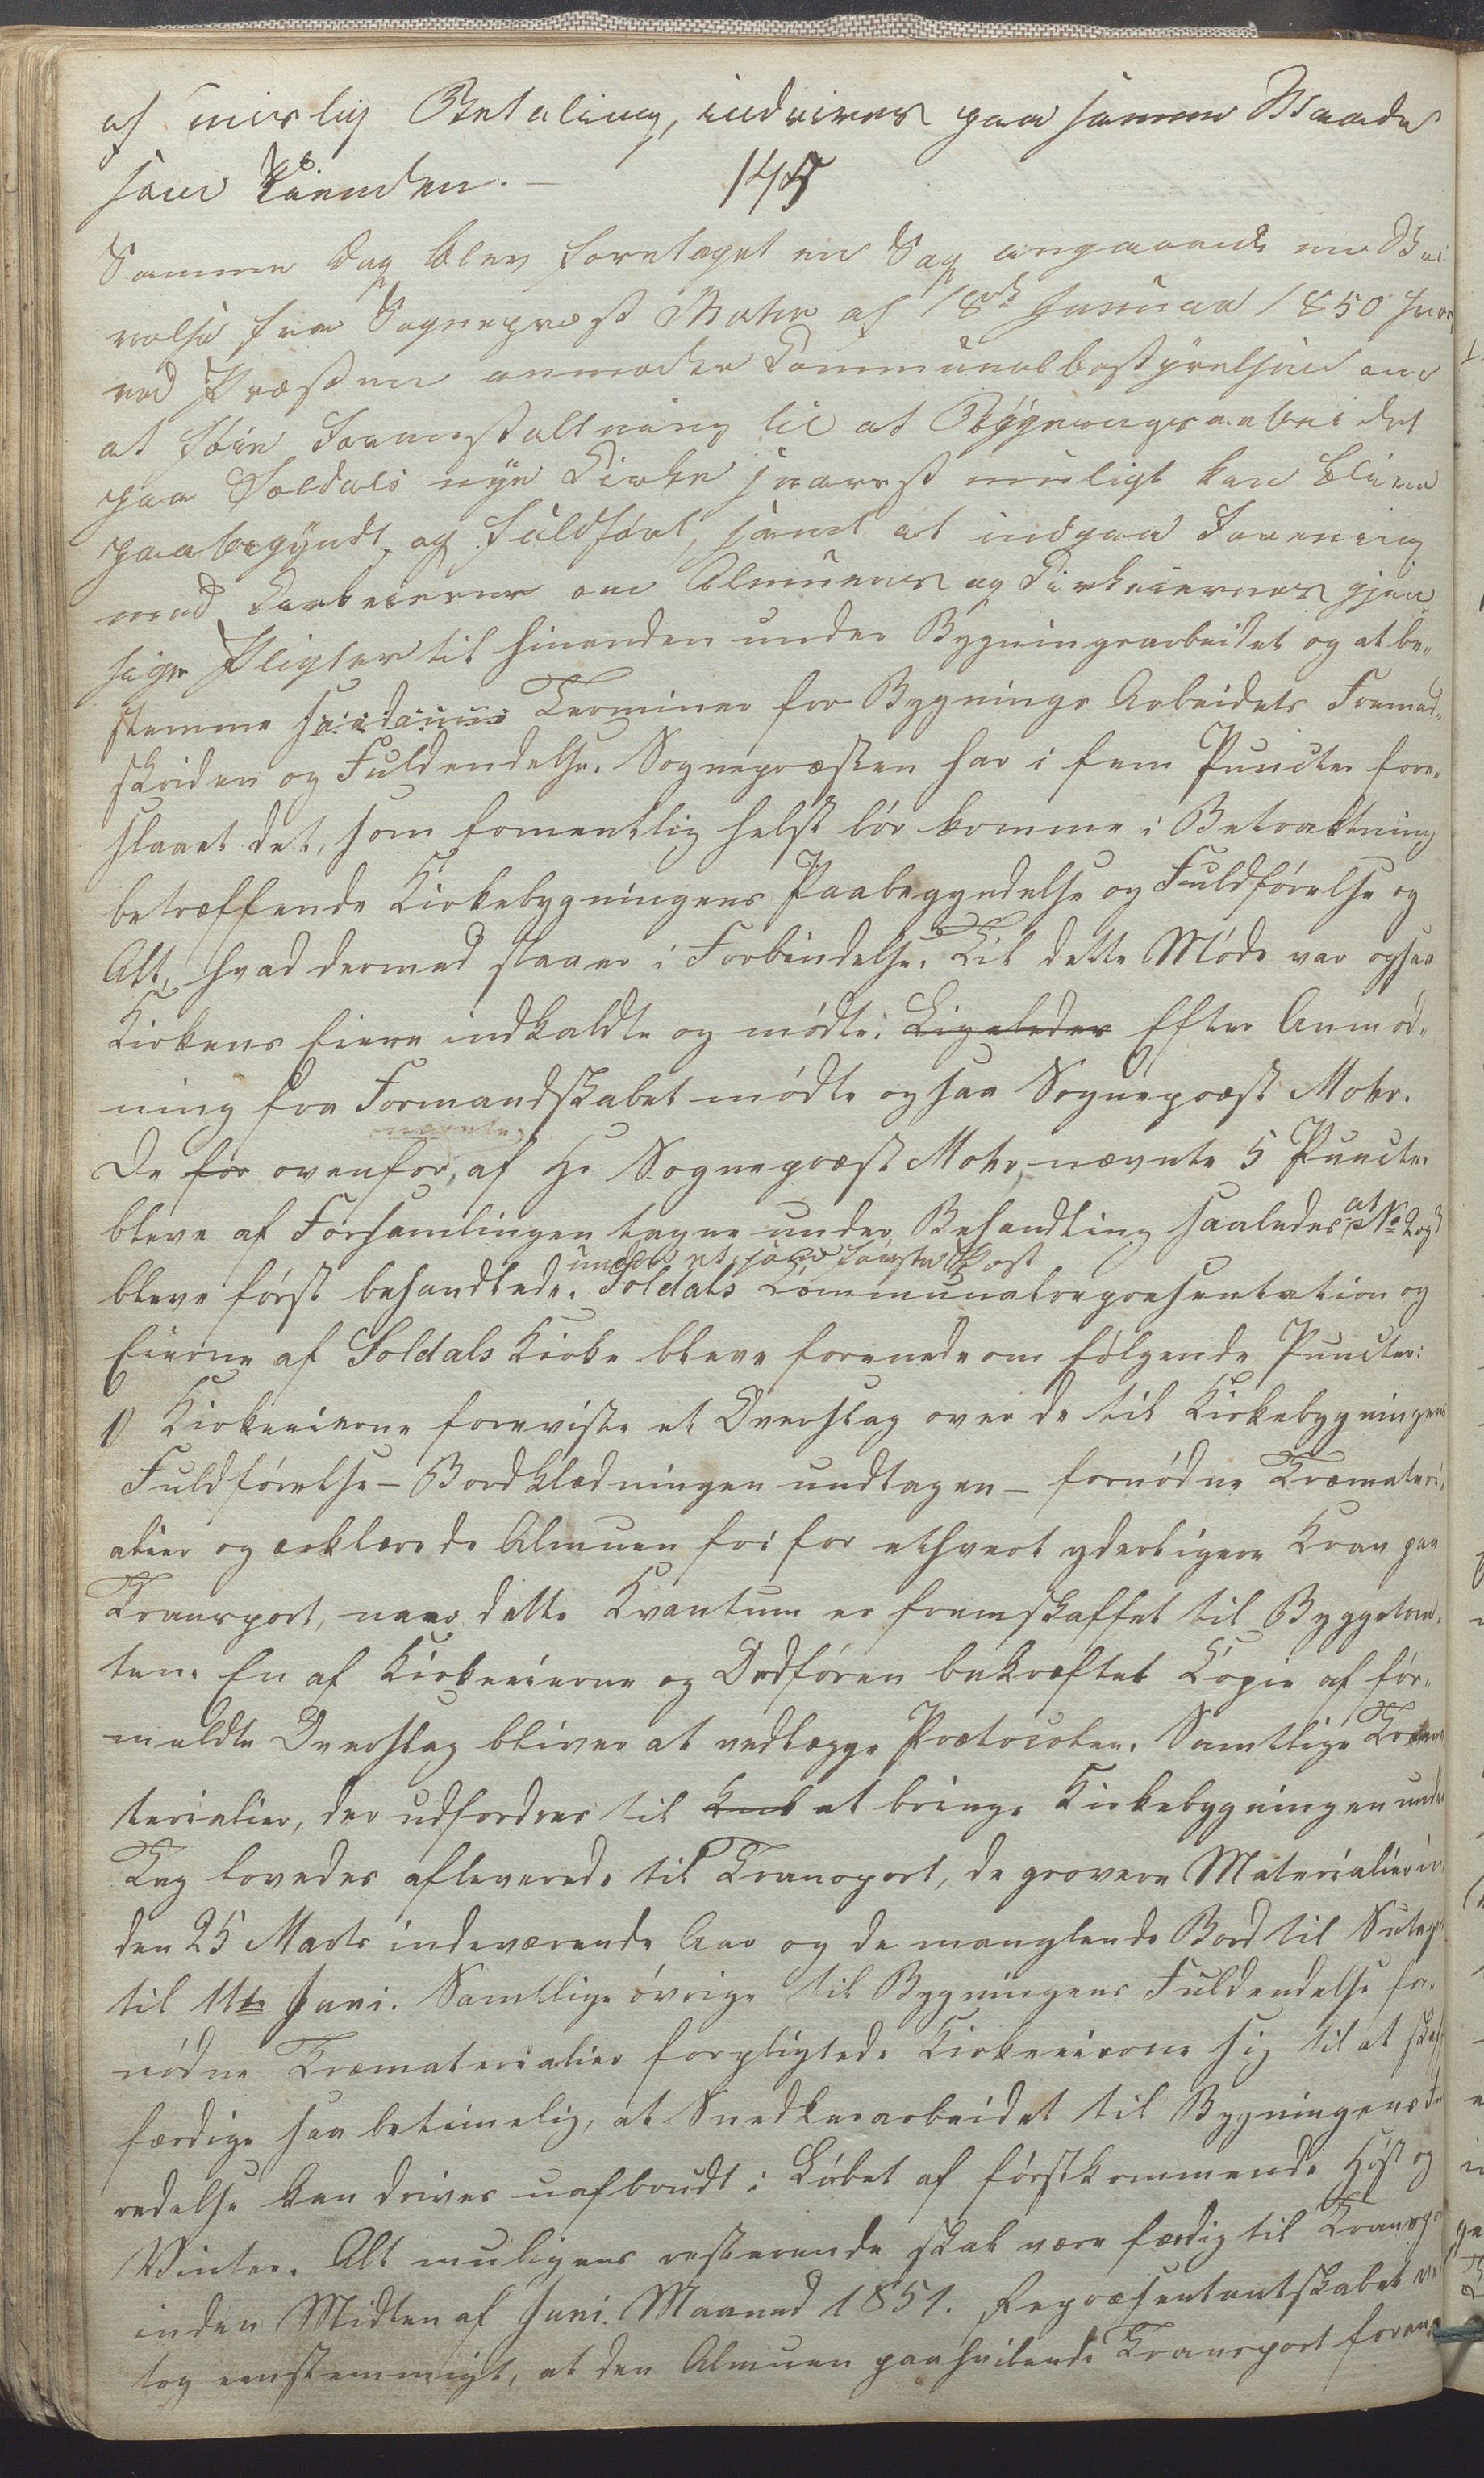 af mislig Betaling, inddrives paa samme Maade
som Tienden. —
145
Samme Dag blev foretaget en Sag angaaende en Skri
velse fra Sognepræst Mohr af 18de Januar 1850 hvor
ved Præsten anmoder Communalbestyrelsen om
at føie Foranstaltning til at Bygningsarbeidet
paa Soldals nye Kirke snarest muligt kan blive
paabegyndt og fuldført, samt at indgaa Forening
med Kirkeeierne om Almuens og Kirkeeiernes gjen
sige Pligter til hinanden under Bygningsarbeidet og at be„
stemme Terminer for Bygnings Arbeidets Fremad„
skriden og Fuldendelse. Sognepræsten har i fem Puncter fore„
slaaet det, som fornemmelig helst bør komme i Betraktning
betræffende Kirkebygningens Paabegyndelse og Fuldførelse og
Alt, hvad dermed staaer i Forbindelse. Til dette Møde var ogsaa
Kirkens Eiere indkaldte og mødte. Ligeledes Efter Anmod„
ning fra Formandskabet mødte ogsaa Sognepræst Mohr.
nævnte
De for ovenfor, af Hr Sognepræst Mohr, nævnte 5 Puncter
bleve af Forsamlingen tagne under Behandling saaledes at No 2 og
bleve først behandlede. Soldals Communalrepresentation og
Eierne af Soldals Kirke bleve forenede om følgende Puncter:
1) Kirkeeierne foreviste et Overslag over de til Kirkebygningens
Fuldførelse – Bordklædningen undtagen – fornødne Træmateri„
alier og erklærede Almuen fri for ethvert yderligere Krav paa
Transport, naar dette Kvantum er fremskaffet til Byggetom„
ten. En af Kirkeeierne og Ordføren bekræftet Copie af for„
meldte Overslag bliver at vedlægge Protocolen. Samtlige Træma
terialier, der udfordres til at bringe Kirkebygningen under
Tag lovedes afleverede til Transport, de grovere Materialier in
den 25 Marts indeværende Aar og de manglende Bord til Sutag
til 11te Juni. Samtlige øvrige til Bygningens Fuldendelse for„
nødne Træmaterialier forpligtede Kirkeeierne sig til at skaffe
færdige saa betimelig, at Snedkerarbeidet til Bygningens
redelse kan drives uafbrudt i Løbet af førstkommende Høst og
Vinter. Alt muligens resterende skal være færdig til Transport
inden Midten af Juni Maaned 1851. Repræsentantskabet ved
tog eenstemmigt, at den Almuen paahvilende Transport foran